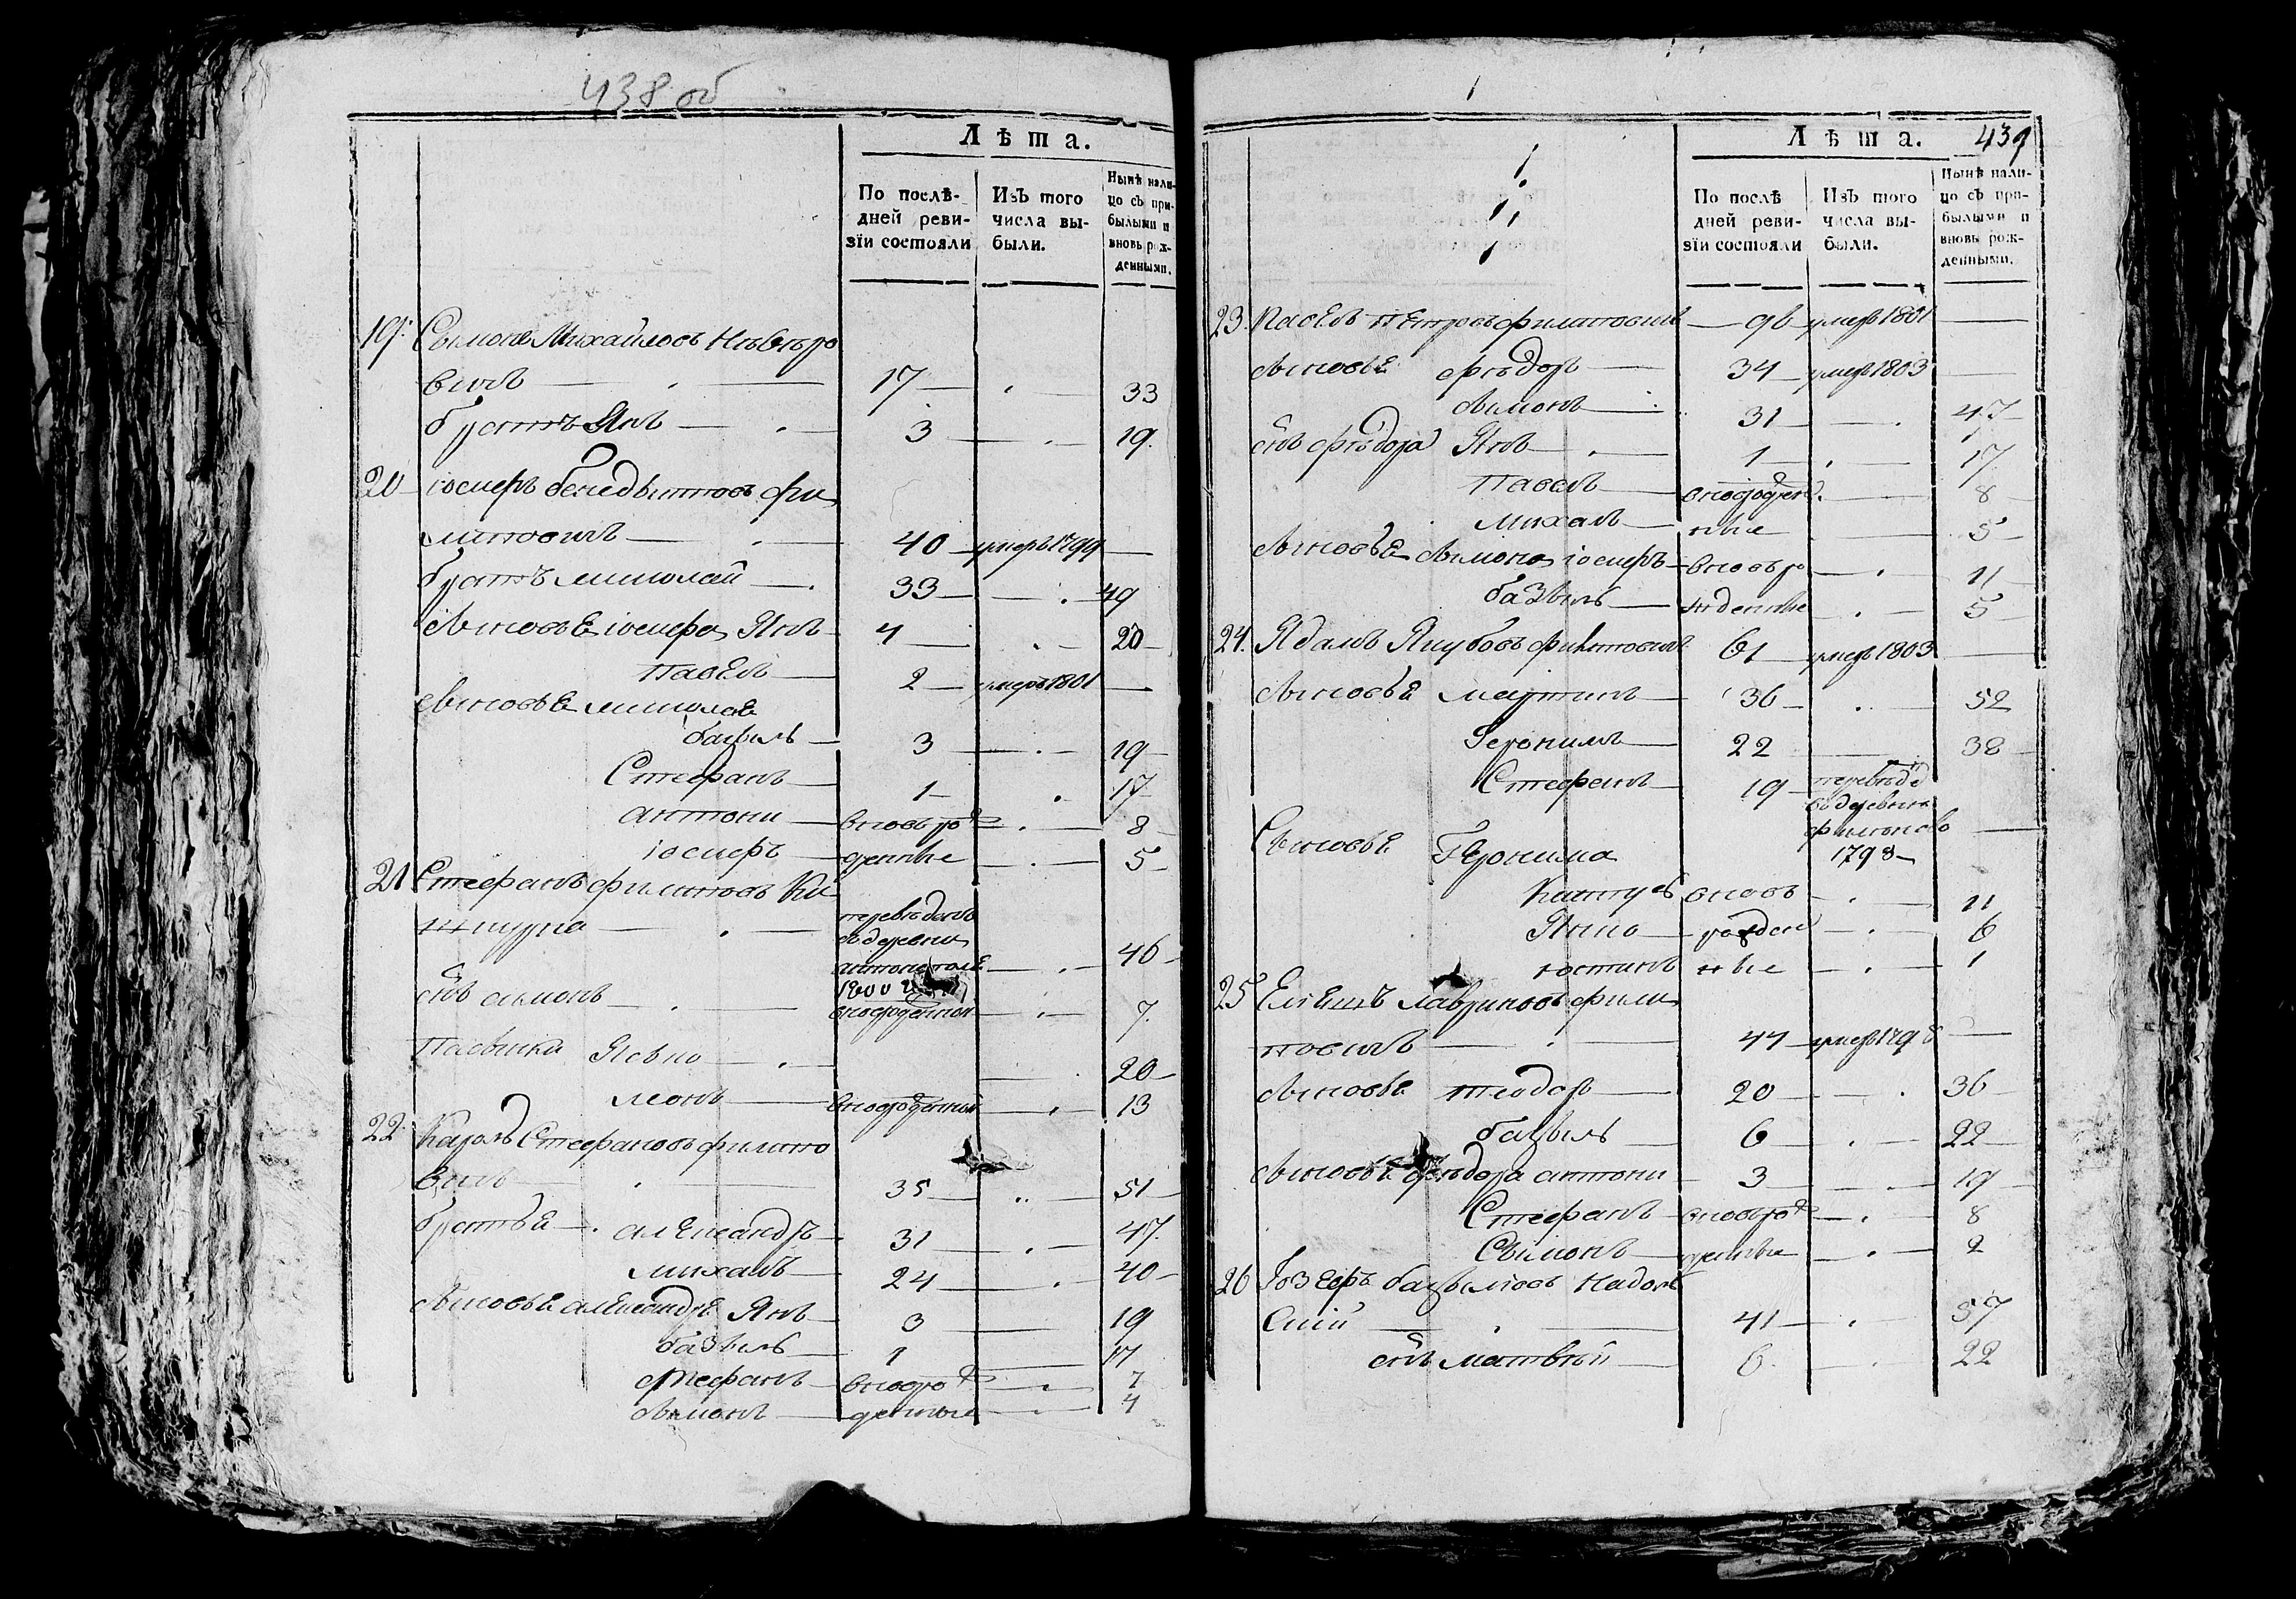 438 об
Лѣта.
По послѣ-
дней реви-
зїи состояли
ИзЪ того
числа вы-
были.
Нынѣ нали-
цо съ при-
былыми и
вновь рож-
денными.
19. Сымонъ Михайловъ
вичъ 17 33
братъ Янъ 3 19.
20 іосифъ бенедыктовъ фи
липовичъ 40 умеръ 1799
братъ миколай 33 49
сыновьѣ іосифа Янъ 4 20
павелъ 2 умеръ 1801
сыновьѣ миколая
базыль 3 19
Стефанъ 1 17
антони вновъро 8
іосифъ жденные 5
21 Стефанъ филиповъ
переведенъ
въ деревни
1800 46
сынъ симонъ вноворожденной 7.
Пасынки 20
леонъ вноворожденной 13
22 Кароль Стефановъ филипо
вичъ 35 51
братьѣ александръ 31 47.
михалъ 24 40
сыновьѣ александра Янъ 3 19
базыль 1 17
стефанъ вновро 7
сымонъ жденные 4
439
Лѣта.
По послѣ
дней реви-
зїи состояли
ИзЪ того
числа вы-
были.
Нынѣ нали-
цо съ при-
былыми и
вновь рож-
денными.
23. Павелъ Петровъ филиповичъ 96 умеръ 1801
сыновьѣ фѣдоръ 34 умеръ 1803
сымонъ 31 47
сынъ фѣдора Янъ 1 17
павелъ вноворожден 8
михалъ ные 5
сыновьѣ сымона іосифъ вновъро 11
базыль жденные 5
24. Адамъ Якубовъ филиповичъ 61 умеръ 1803
сыновьѣ мартинъ 36 52
Геронимъ 22 38
Стефанъ 19 переведе
въ деревню
1798
Сыновьѣ Геронима
вновъ 11
Янко рожден 6
юстинъ ные 1
25 лавриновъ фили
повичъ 44 умеръ 1798
сыновьѣ теодоръ 20 36
базыль 6 22
сыновьѣ фѣдора антони 3 19
Стефанъ вновъро 8
Сымонъ жденные 2
26 Іозефъ базылювъ Надол
скій 41 57
сынъ матвѣй 6 22